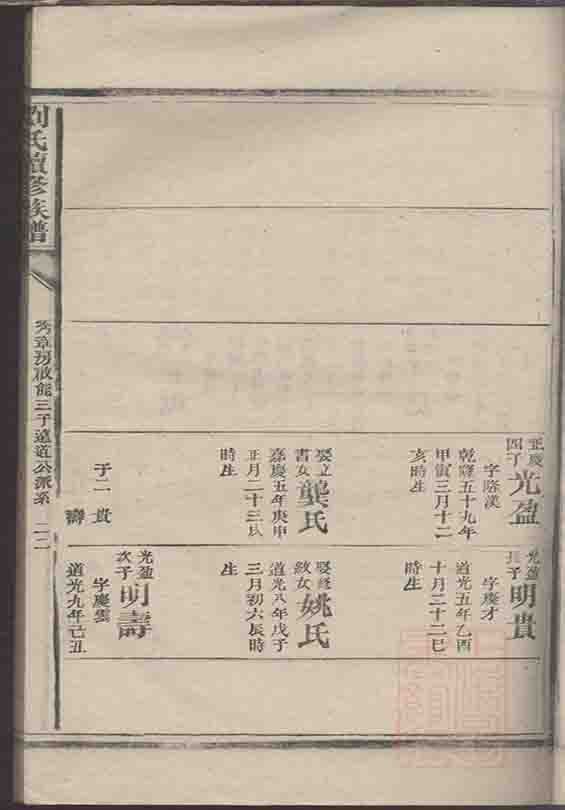 劉氏續修族譜
秀章房啟能三子遠道公派系 二二
正慶四子 光盈
字隆漢
乾隆五十九年
甲寅三月十二
亥時生
娶立書女 龔氏
嘉慶五年庚申
正月二十三
時生
子二 貴
壽
光盈長子 明貴
字慶才
道光五年乙酉
十月二十二巳
時生
娶 紋女 姚氏
道光八年戊子
三月初六辰時
生
光盈次子 明壽
字慶雲
道光九年己丑